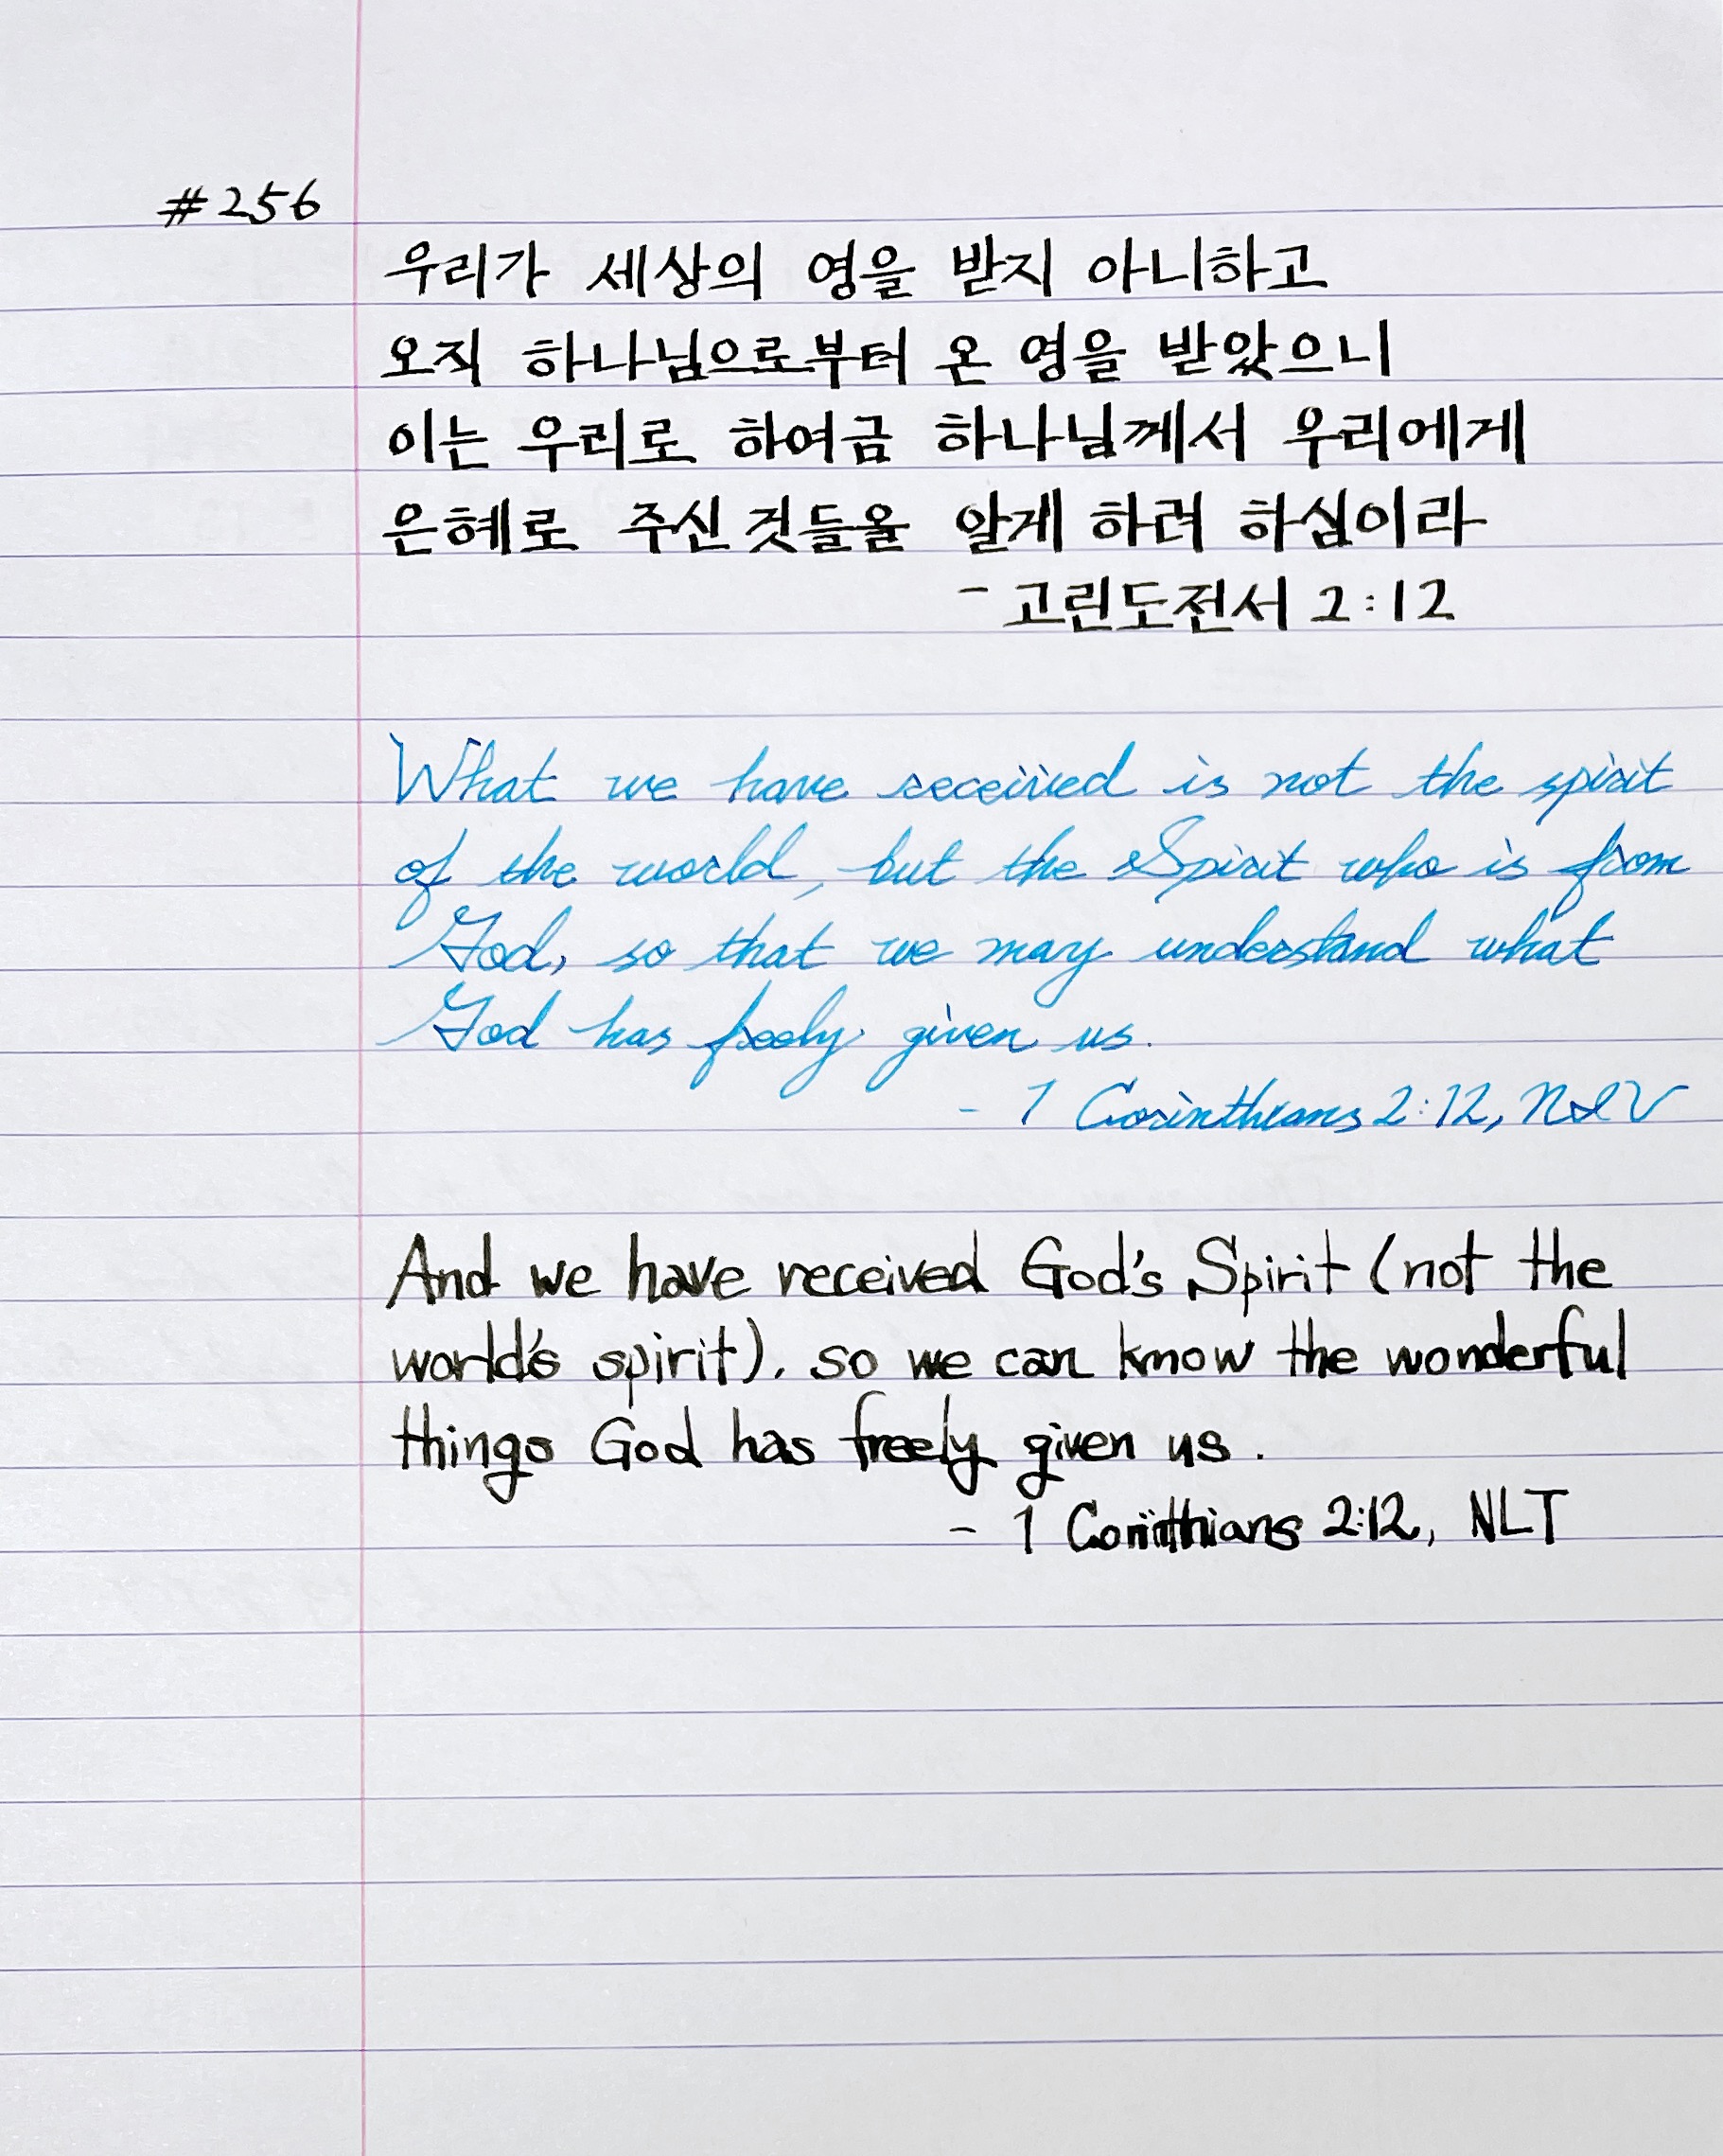 #256
우리가 세상의 영을 받지 아니하고
오직 하나님으로부터 온 영을 받았으니
이는 우리로 하여금 하나님께서 우리에게
은혜로 주신 것들을 알게 하려 하심이라
- 고린도전서 2:12
What we have received is not the spirit
of the world, but the Spirit who is from
God, so that we may understand what
God has freely given us.
- 1 Corinthians 2:12, NIV
And we have received God's Spirit (not the
world's spirit), so we can know the wonderful
things God has freely given us.
- 1 Corinthians 2:12, NLT